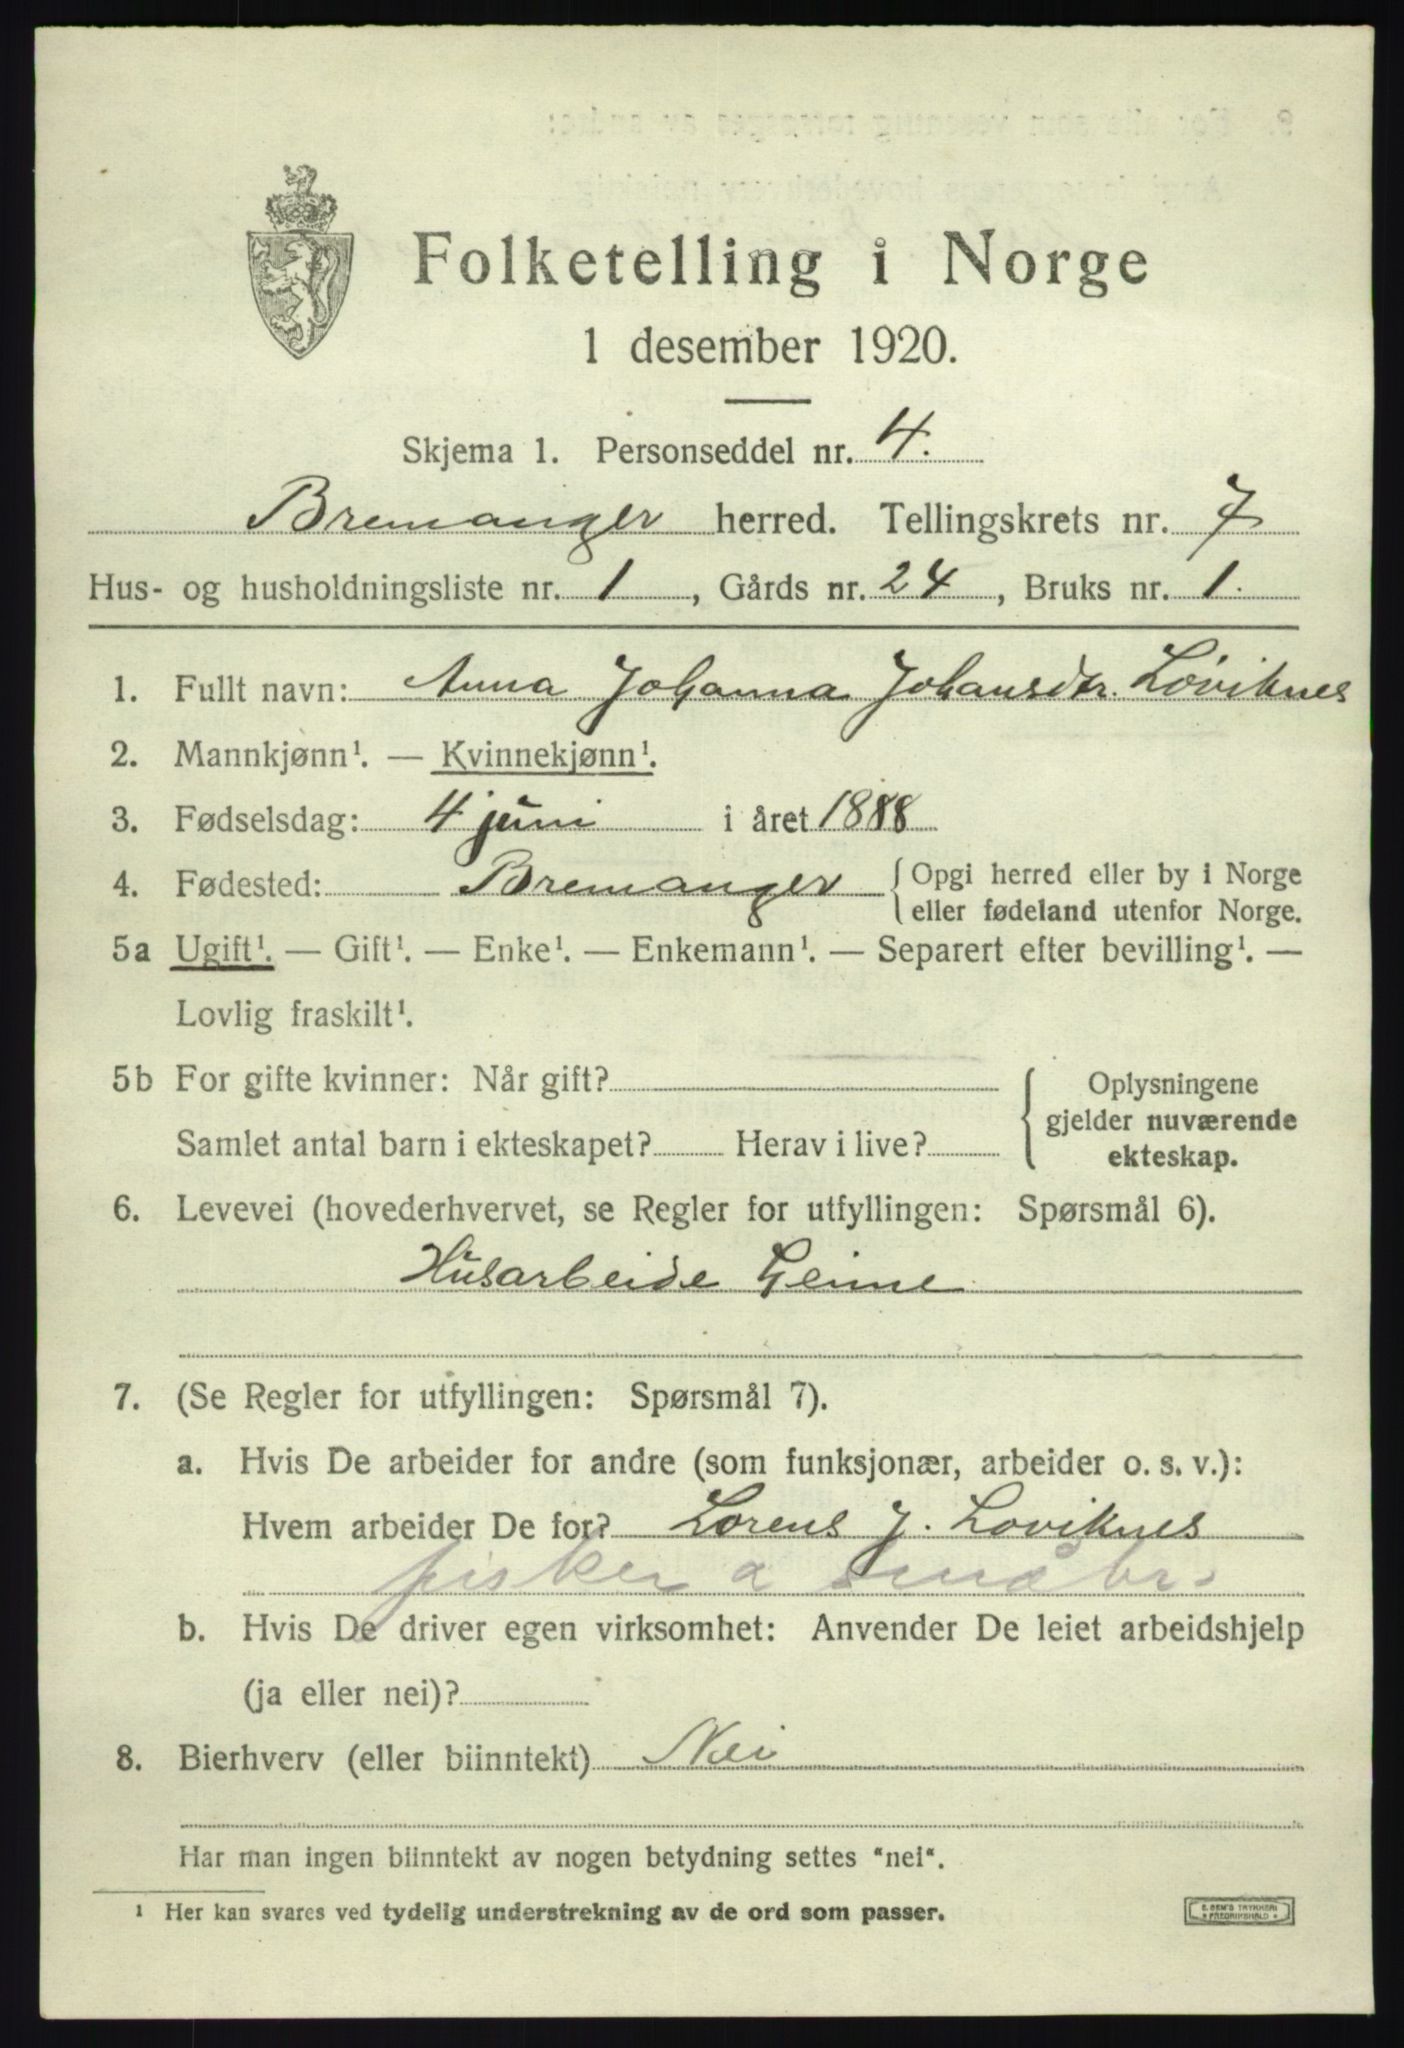 Folketelling i Norge
1 desember 1920.
Skjema 1. Personseddel nr. 4.
Bremanger herred. Tellingskrets nr. 7
Hus- og husholdningsliste nr. 1, Gårds nr. 24, Bruks nr. 1.
1. Fullt navn: Anna Johanna Johansdtr. Løviknes
2. Mannkjønn¹. — Kvinnekjønn¹.
3. Fødselsdag: 4 juni i året 1888
4. Fødested: Bremanger { Opgi herred eller by i Norge
eller fødeland utenfor Norge.
5a Ugift¹. — Gift¹. — Enke¹. — Enkemann¹. — Separert efter bevilling¹. —
Lovlig fraskilt¹.
5b For gifte kvinner: Når gift?
Samlet antal barn i ekteskapet? Herav i live?
Oplysningene
gjelder nuværende
ekteskap.
6. Levevei (hovederhvervet, se Regler for utfyllingen: Spørsmål 6).
Husarbeide Heime
7. (Se Regler for utfyllingen: Spørsmål 7).
a. Hvis De arbeider for andre (som funksjonær, arbeider o. s. v.):
Hvem arbeider De for? Lorens J. Loviknes
fisker a småbr.
b. Hvis De driver egen virksomhet: Anvender De leiet arbeidshjelp
(ja eller nei)?
8. Bierhverv (eller biinntekt) Nei
Har man ingen biinntekt av nogen betydning settes "nei".
¹ Her kan svares ved tydelig understrekning av de ord som passer.
E. SEM'S TRYKKERI
FREDRIKSHALD